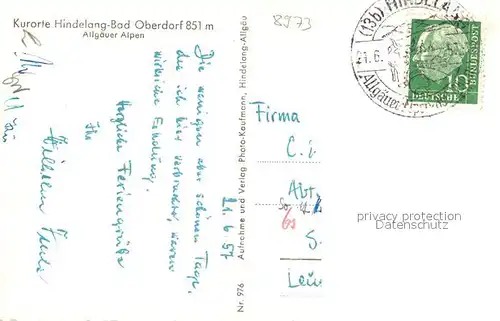 Kurorte Hindelang-Bad Oberdorf 851 m
Allgäuer Alpen
8973
(13b) HINDELA
21.6.
Allgäuer
10
DEUTSCHE
BUNDESPOST
21.6.57
Die wenigen aber schönen Tage,
die ich hier verbrachte, waren
wirkliche Erholung.
Herzliche Feriengrüße
Ihr
Wilhelm
Aufnahme und Verlag Photo-Kaufmann, Hindelang-Allgäu
Nr. 976
Firma
C.
Abt
S.
privacy protection
Datenschutz